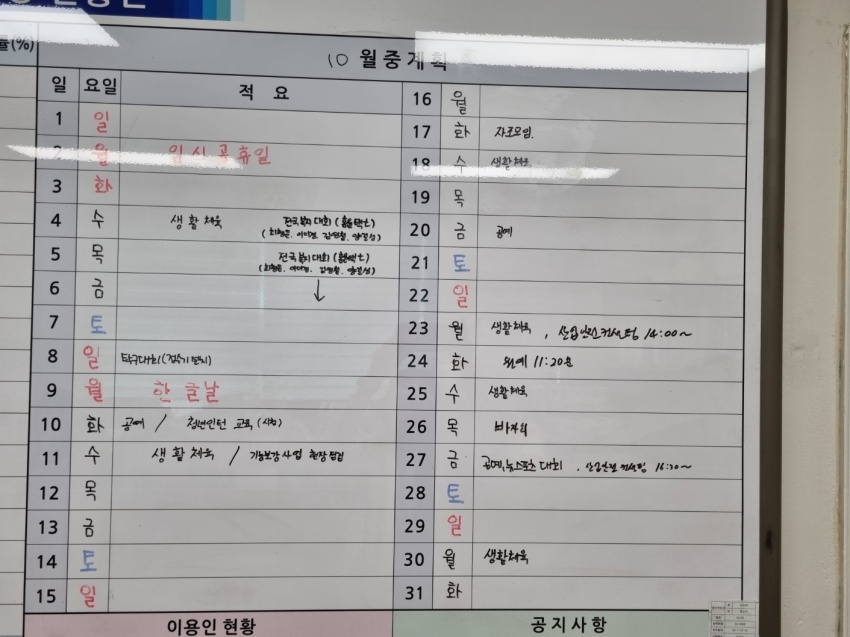 률(%)
10 월중계획
일 요일 적 요
1 일
2 월 임시공휴일
3 화
4 수 생활체육 전국복지대회
5 목 전국복지대회
6 금
7 토
8 일 탁구대회
9 월 한글날
10 화 공예 / 청년인턴 교육 (시청)
11 수 생활체육 / 기능보강사업 현장점검
12 목
13 금
14 토
15 일
16 월
17 화 자조모임.
18 수 생활체육
19 목
20 금 공예
21 토
22 일
23 월 생활체육 , 산업안전컨설팅 14:00~
24 화 원예 11:20
25 수 생활체육
26 목 바자회
27 금 공예, 뉴스포츠 대회 , 산업안전 컨설팅
28 토
29 일
30 월 생활체육
31 화
이용인 현황
공지사항